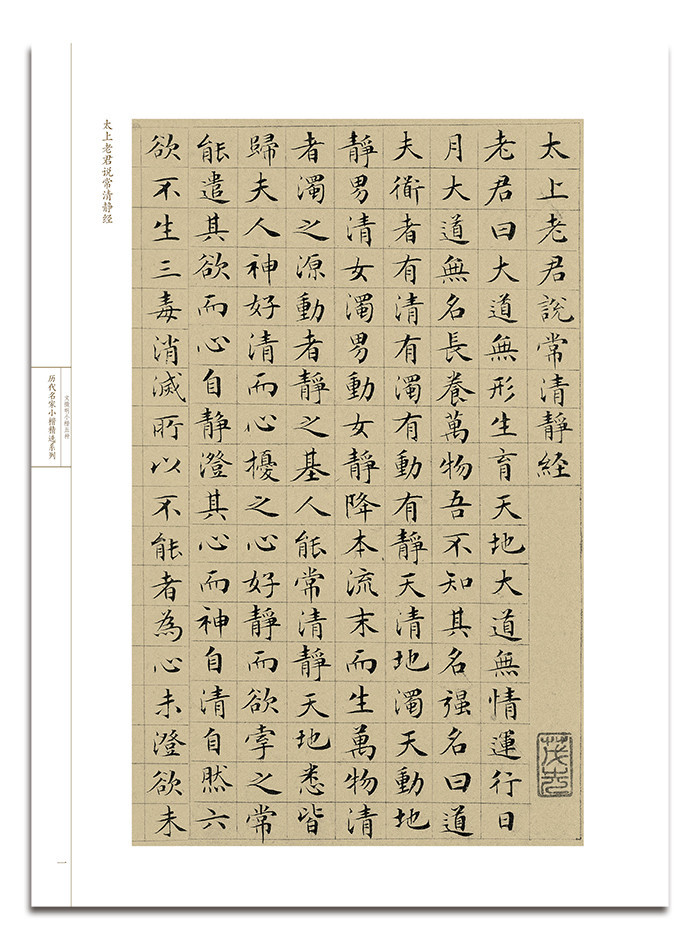 太上老君說常清靜經
老君曰大道無形生育天地大道無情運行日
月大道無名長養萬物吾不知其名强名曰道
夫衜者有清有濁有動有靜天清地濁天動地
靜男清女濁男動女靜降本流末而生萬物清
者濁之源動者靜之基人能常清靜天地悉皆
歸夫人神好清而心擾之心好靜而欲牽之常
能遣其欲而心自静澄其心而神自清自然六
欲不生三毒消滅所以不能者為心未澄欲未
太上老君说常清静经
文徵明小楷五种
历代名家小楷精选系列
一